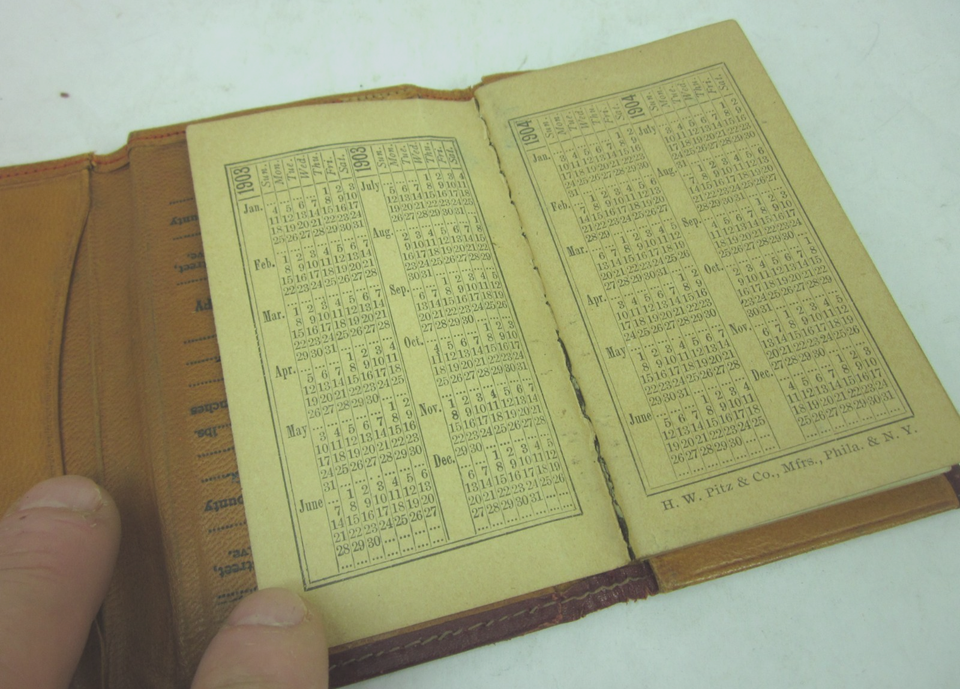 1903 Sun. Mon. Tue. Wed. Thu. Fri. Sat.
Jan. 1 2 3
4 5 6 7 8 9 10
11 12 13 14 15 16 17
18 19 20 21 22 23 24
25 26 27 28 29 30 31
Feb. 1 2 3 4 5 6 7
8 9 10 11 12 13 14
15 16 17 18 19 20 21
22 23 24 25 26 27 28
Mar. 1 2 3 4 5 6 7
8 9 10 11 12 13 14
15 16 17 18 19 20 21
22 23 24 25 26 27 28
29 30 31
Apr. 1 2 3 4
5 6 7 8 9 10 11
12 13 14 15 16 17 18
19 20 21 22 23 24 25
26 27 28 29 30
May 1 2
3 4 5 6 7 8 9
10 11 12 13 14 15 16
17 18 19 20 21 22 23
24 25 26 27 28 29 30
31
June 1 2 3 4 5 6
7 8 9 10 11 12 13
14 15 16 17 18 19 20
21 22 23 24 25 26 27
28 29 30
1903 Sun. Mon. Tue. Wed. Thu. Fri. Sat.
July 1 2 3 4
5 6 7 8 9 10 11
12 13 14 15 16 17 18
19 20 21 22 23 24 25
26 27 28 29 30 31
Aug. 1
2 3 4 5 6 7 8
9 10 11 12 13 14 15
16 17 18 19 20 21 22
23 24 25 26 27 28 29
30 31
Sep. 1 2 3 4 5
6 7 8 9 10 11 12
13 14 15 16 17 18 19
20 21 22 23 24 25 26
27 28 29 30
Oct. 1 2 3
4 5 6 7 8 9 10
11 12 13 14 15 16 17
18 19 20 21 22 23 24
25 26 27 28 29 30 31
Nov. 1 2 3 4 5 6 7
8 9 10 11 12 13 14
15 16 17 18 19 20 21
22 23 24 25 26 27 28
29 30
Dec. 1 2 3 4 5
6 7 8 9 10 11 12
13 14 15 16 17 18 19
20 21 22 23 24 25 26
27 28 29 30 31
1904 Sun. Mon. Tue. Wed. Thu. Fri. Sat.
Jan. 1 2
3 4 5 6 7 8 9
10 11 12 13 14 15 16
17 18 19 20 21 22 23
24 25 26 27 28 29 30
31
Feb. 1 2 3 4 5 6
7 8 9 10 11 12 13
14 15 16 17 18 19 20
21 22 23 24 25 26 27
28 29
Mar. 1 2 3 4 5
6 7 8 9 10 11 12
13 14 15 16 17 18 19
20 21 22 23 24 25 26
27 28 29 30 31
Apr. 1 2
3 4 5 6 7 8 9
10 11 12 13 14 15 16
17 18 19 20 21 22 23
24 25 26 27 28 29 30
May 1 2 3 4 5 6 7
8 9 10 11 12 13 14
15 16 17 18 19 20 21
22 23 24 25 26 27 28
29 30 31
June 1 2 3 4
5 6 7 8 9 10 11
12 13 14 15 16 17 18
19 20 21 22 23 24 25
26 27 28 29 30
1904 Sun. Mon. Tue. Wed. Thu. Fri. Sat.
July 1 2
3 4 5 6 7 8 9
10 11 12 13 14 15 16
17 18 19 20 21 22 23
24 25 26 27 28 29 30
31
Aug. 1 2 3 4 5 6
7 8 9 10 11 12 13
14 15 16 17 18 19 20
21 22 23 24 25 26 27
28 29 30 31
Sep. 1 2 3
4 5 6 7 8 9 10
11 12 13 14 15 16 17
18 19 20 21 22 23 24
25 26 27 28 29 30
Oct. 1
2 3 4 5 6 7 8
9 10 11 12 13 14 15
16 17 18 19 20 21 22
23 24 25 26 27 28 29
30 31
Nov. 1 2 3 4 5
6 7 8 9 10 11 12
13 14 15 16 17 18 19
20 21 22 23 24 25 26
27 28 29 30
Dec. 1 2 3
4 5 6 7 8 9 10
11 12 13 14 15 16 17
18 19 20 21 22 23 24
25 26 27 28 29 30 31
H. W. Pitz & Co., Mfrs., Phila. & N. Y.
lbs.